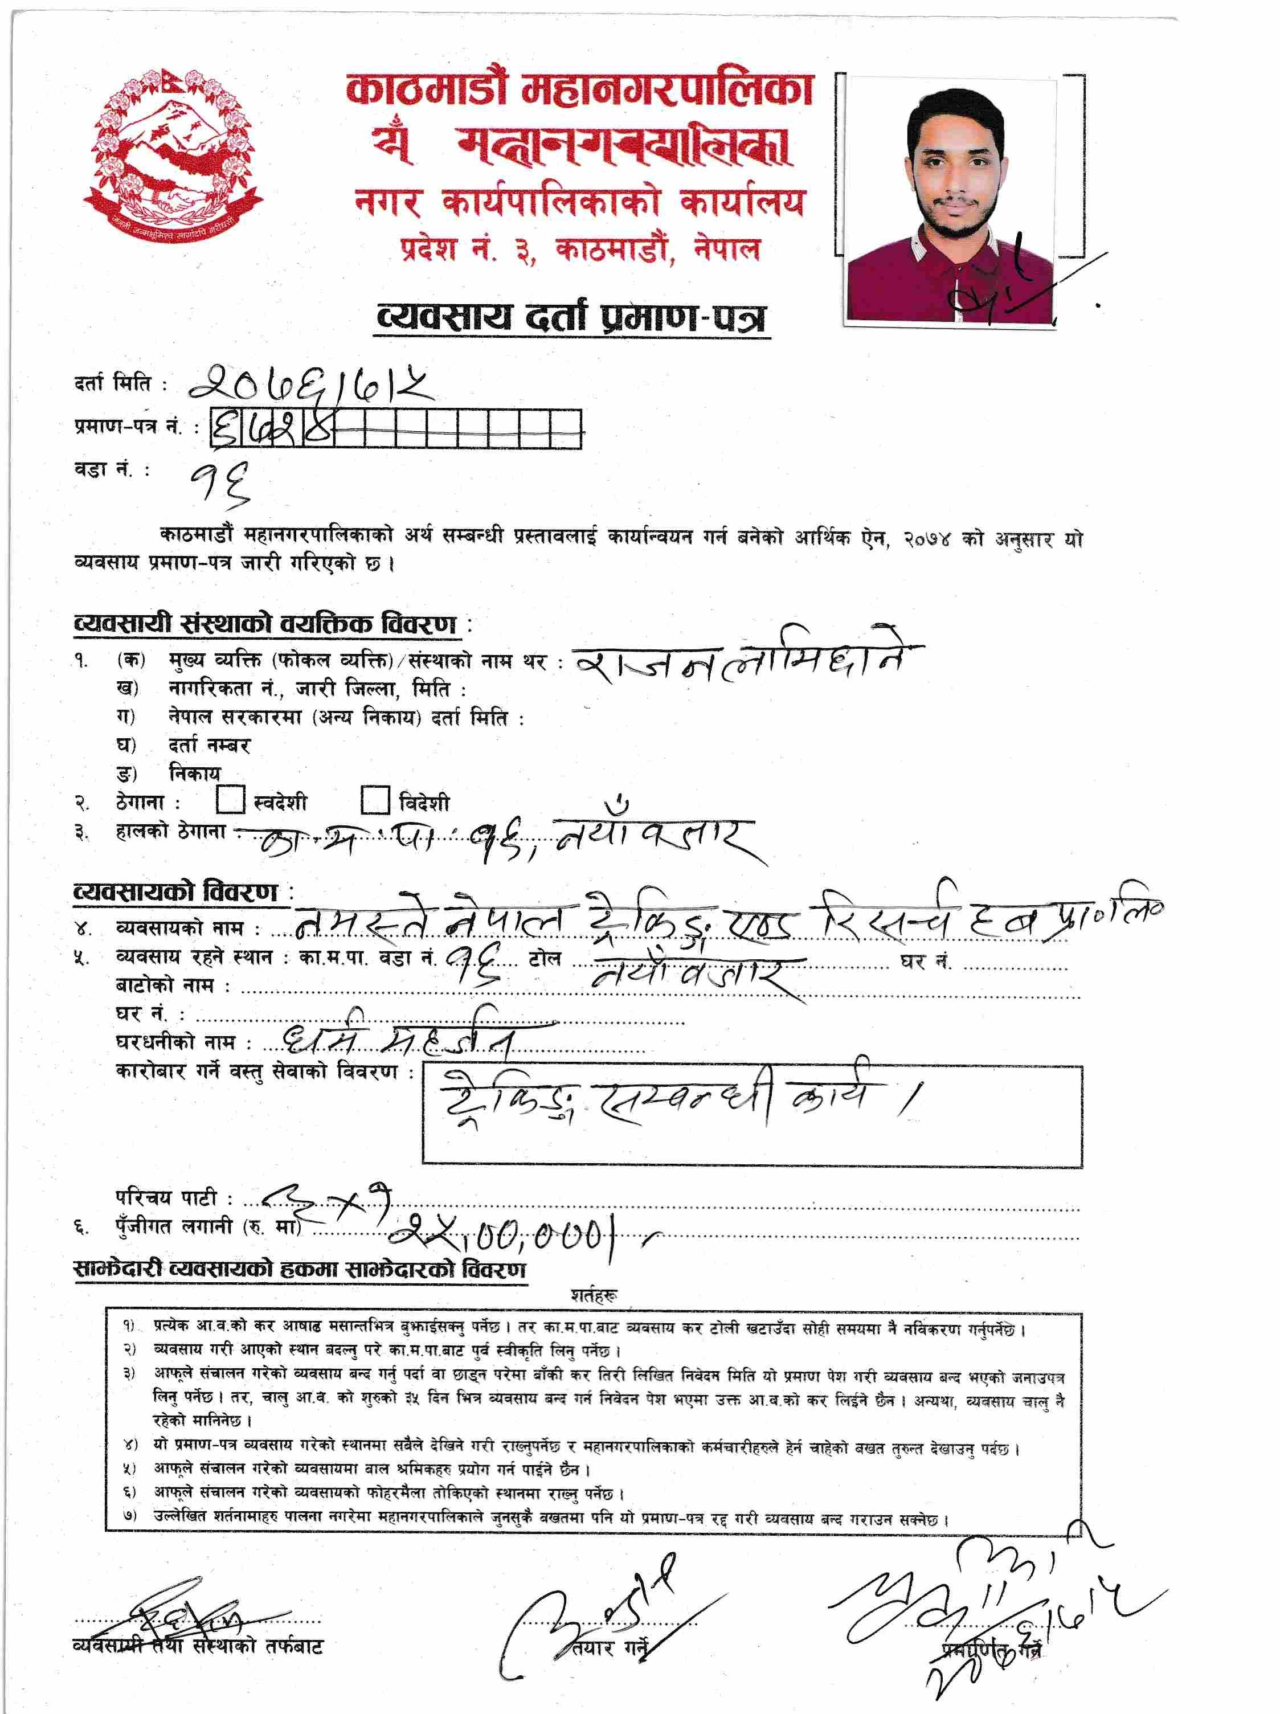 काठमाडौं महानगरपालिका
नगर कार्यपालिकाको कार्यालय
प्रदेश नं. ३, काठमाडौं, नेपाल
व्यवसाय दर्ता प्रमाण-पत्र
दर्ता मिति : २०७६।७।५
प्रमाण-पत्र नं. : ६७२४
वडा नं. : १६
काठमाडौं महानगरपालिकाको अर्थ सम्बन्धी प्रस्तावलाई कार्यान्वयन गर्न बनेको आर्थिक ऐन, २०७४ को अनुसार यो
व्यवसाय प्रमाण-पत्र जारी गरिएको छ ।
व्यवसायी संस्थाको वयक्तिक विवरण :
१. (क) मुख्य व्यक्ति (फोकल व्यक्ति)/संस्थाको नाम थर : राजन लामिछाने
ख) नागरिकता नं., जारी जिल्ला, मिति :
ग) नेपाल सरकारमा (अन्य निकाय) दर्ता मिति :
घ) दर्ता नम्बर
ङ) निकाय
२. ठेगाना : स्वदेशी विदेशी
३. हालको ठेगाना का.म.पा. १६, नयाँ बजार
व्यवसायको विवरण :
४. व्यवसायको नाम : नमस्ते नेपाल ट्रेकिङ्ग एण्ड रिसर्च हब प्रा०लि०
५. व्यवसाय रहने स्थान : का.म.पा. वडा नं. १६ टोल नयाँ बजार घर नं.
बाटोको नाम :
घर नं. :
घरधनीको नाम : धर्म महर्जन
कारोबार गर्ने वस्तु सेवाको विवरण : ट्रेकिङ्ग सम्बन्धी कार्य ।
परिचय पाटी : ३×१
६. पुँजीगत लगानी (रु. मा) २५,००,०००/-
साझेदारी व्यवसायको हकमा साझेदारको विवरण
शर्तहरू
१) प्रत्येक आ.व.को कर आषाढ मसान्तभित्र बुझाईसक्नु पर्नेछ । तर का.म.पा.बाट व्यवसाय कर टोली खटाउँदा सोही समयमा नै नविकरण गर्नुपर्नेछ ।
२) व्यवसाय गरी आएको स्थान बदल्नु परे का.म.पा.बाट पुर्व स्वीकृति लिनु पर्नेछ ।
३) आफूले संचालन गरेको व्यवसाय बन्द गर्नु पर्दा वा छाड्न परेमा बाँकी कर तिरी लिखित निवेदन मिति यो प्रमाण पेश गरी व्यवसाय बन्द भएको जनाउपत्र
लिनु पर्नेछ । तर, चालु आ.व. को शुरुको ३५ दिन भित्र व्यवसाय बन्द गर्न निवेदन पेश भएमा उक्त आ.व.को कर लिईने छैन । अन्यथा, व्यवसाय चालु नै
रहेको मानिनेछ ।
४) यो प्रमाण-पत्र व्यवसाय गरेको स्थानमा सबैले देखिने गरी राख्नुपर्नेछ र महानगरपालिकाको कर्मचारीहरुले हेर्न चाहेको बखत तुरुन्त देखाउनु पर्दछ ।
५) आफूले संचालन गरेको व्यवसायमा बाल श्रमिकहरु प्रयोग गर्न पाईने छैन ।
६) आफूले संचालन गरेको व्यवसायको फोहरमैला तोकिएको स्थानमा राख्नु पर्नेछ ।
७) उल्लेखित शर्तनामाहरु पालना नगरेमा महानगरपालिकाले जुनसुकै बखतमा पनि यो प्रमाण-पत्र रद्द गरी व्यवसाय बन्द गराउन सक्नेछ ।
२०७६।७।५
व्यवसायी तथा संस्थाको तर्फबाट तयार गर्ने प्रमाणित गर्ने